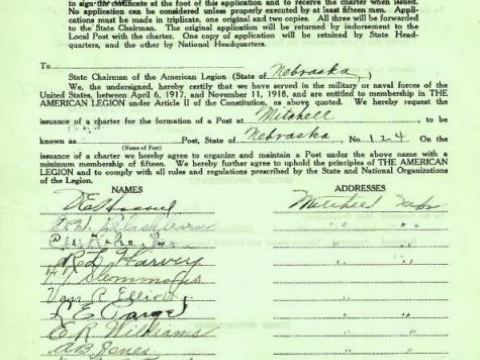 to sign the certificate at the foot of this application and to receive the charter when issued.
No application can be considered unless properly executed by at least fifteen men. Appli-
cations must be made in triplicate, one original and two copies. All three will be forwarded
to the State Chairman. The original application will be returned by indorsement to the
Local Post with the charter. One copy of application will be retained by State Head-
quarters, and the other by National Headquarters.
To
State Chairman of the American Legion (State of Nebraska)
We, the undersigned, hereby certify that we have served in the military or naval forces of the
United States, between April 6, 1917, and November 11, 1918, and are entitled to membership in THE
AMERICAN LEGION under Article II of the Constitution, as above quoted. We hereby request the
issuance of charter for the formation of a Post at Mitchell, to be
known as Post, State of Nebraska No. 124 On the
(Name of Post)
issuance of a charter we hereby agree to organize and maintain a Post under the above name with a
minimum membership of fifteen. We hereby further agree to uphold the principles of THE AMERICAN
LEGION and to comply with all rules and regulations prescribed by the State and National Organizations
of the Legion.
NAMES ADDRESSES
Mitchell Nebr
" "
" "
R L Harvey " "
" "
Van R Elliott " "
L E " "
E. R. Williams " "
A B Jones " "